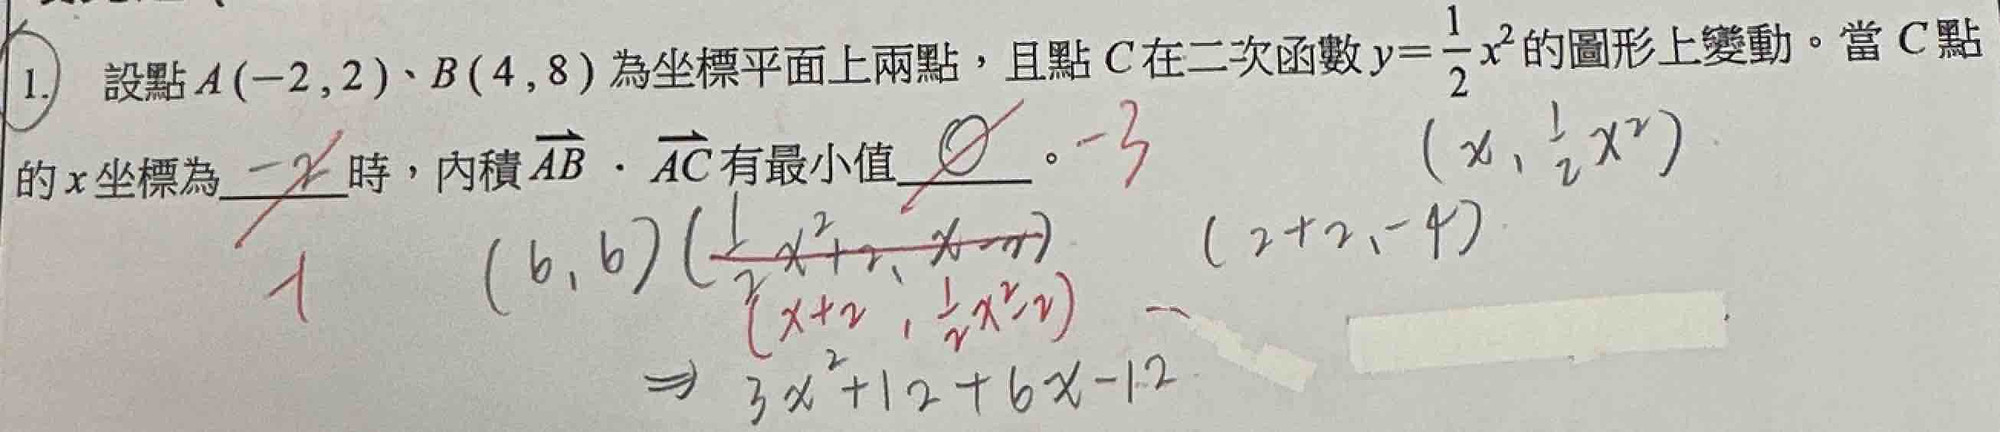 1. 設點 A(−2,2)、B(4,8) 為坐標平面上兩點，且點 C 在二次函數 y=1/2 x²的圖形上變動。當 C 點
的 x 坐標為 −2 時，內積 AB · AC 有最小值 0 。 −3
(x, 1/2 x²)
1
(6, 6) (1/2 x²+2, x−2)
(2+2, −4)
(x+2, 1/2 x²−2)
⇒ 3x²+12+6x−12